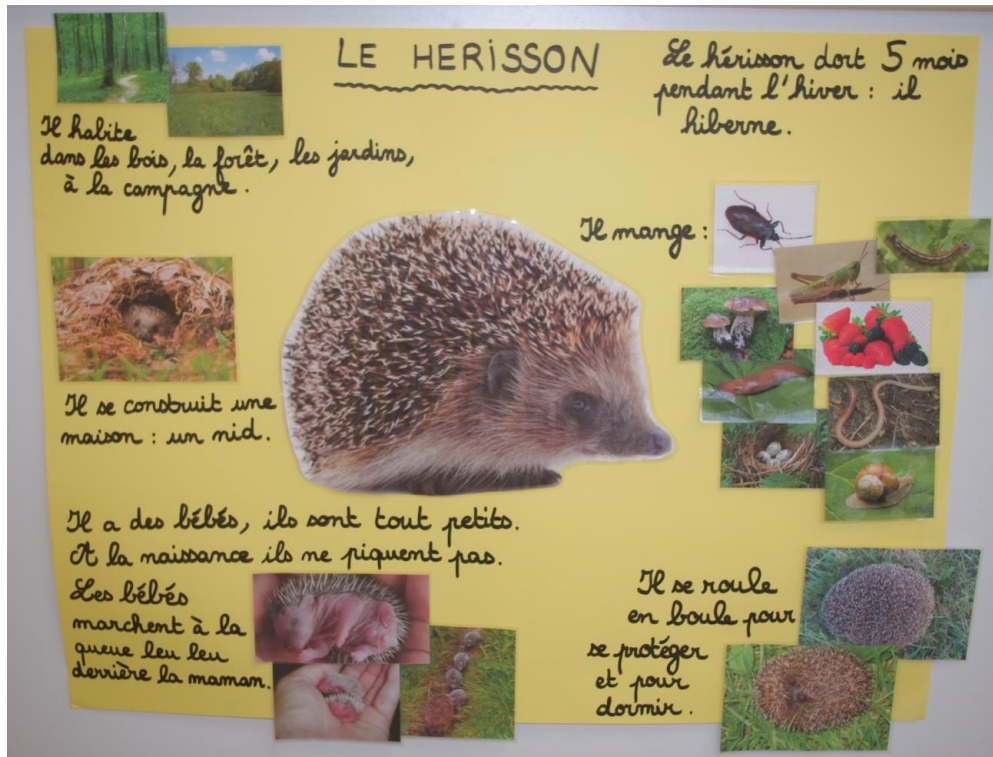 LE HERISSON
Le hérisson dort 5 mois
pendant l'hiver : il
hiberne.
Il habite
dans les bois, la forêt, les jardins,
à la campagne.
Il mange :
Il se construit une
maison : un nid.
Il a des bébés, ils sont tout petits.
A la naissance ils ne piquent pas.
Les bébés
marchent à la
queue leu leu
derrière la maman.
Il se roule
en boule pour
se protéger
et pour
dormir.